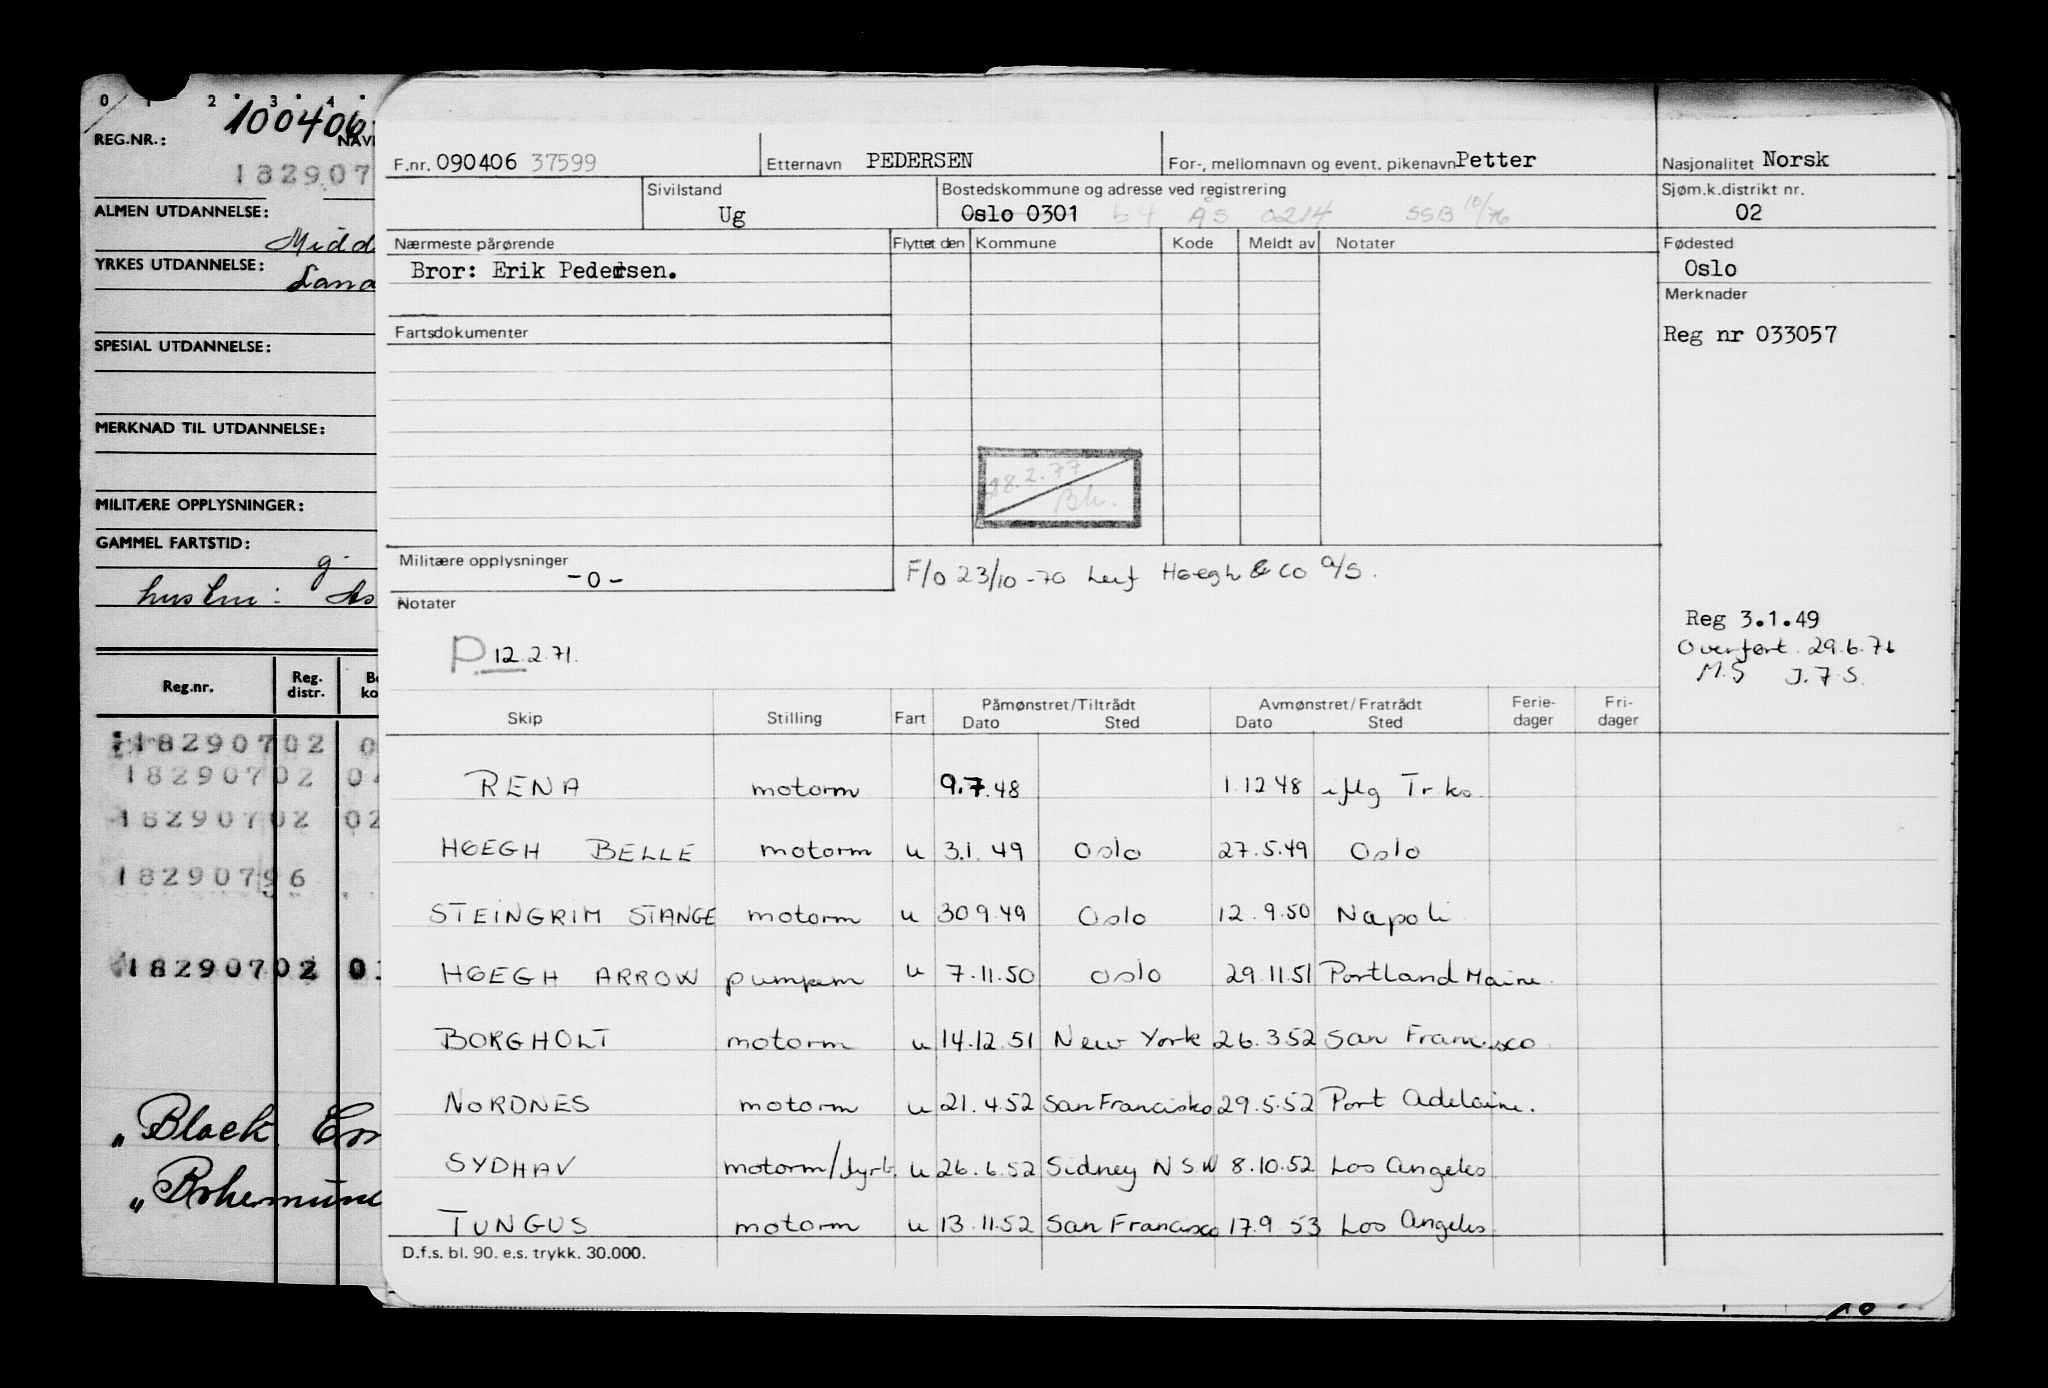 0 1 2 3 4
100406
REG.NR.:
182907
ALMEN UTDANNELSE:
YRKES UTDANNELSE:
SPESIAL UTDANNELSE:
MERKNAD TIL UTDANNELSE:
MILITÆRE OPPLYSNINGER:
GAMMEL FARTSTID:
Reg.nr. Reg. distr.
18290702 0
18290702 04
18290702 02
18290796
18290702 0
„Black
F.nr. 090406 37599 Etternavn PEDERSEN For-, mellomnavn og event. pikenavn Petter Nasjonalitet Norsk
Sivilstand Bostedskommune og adresse ved registrering Sjøm.k.distrikt nr.
Ug Oslo 0301 64 ÅS 0214 SSB 10/76 02
Nærmeste pårørende Flyttet den Kommune Kode Meldt av Notater Fødested
Bror: Erik Pedersen. Oslo
Merknader
Fartsdokumenter Reg nr 033057
28.2.77
Bh.
Militære opplysninger
-0-
F/o 23/10-70 Leif Høegh & Co A/S.
Notater
Reg 3.1.49
P 12.2.71. Overført 29.6.76
M.S J.F.S.
Skip Stilling Fart Påmønstret/Tiltrådt Dato Sted Avmønstret/Fratrådt Dato Sted Ferie-dager Fri-dager
RENA motorm 9.7.48 1.12 48 iflg Tr.ko.
HØEGH BELLE motorm u 3.1.49 Oslo 27.5.49 Oslo
STEINGRIM STANGE motorm u 30 9.49 Oslo 12.9.50 Napoli
HØEGH ARROW pumpem u 7.11.50 Oslo 29.11.51 Portland Maine.
BORGHOLT motorm u 14.12.51 New York 26.3.52 San Francisco
NORDNES motorm u 21.4.52 San Francisko 29.5.52 Port Adelaine.
SYDHAV motorm/fyrb. u 26.6.52 Sidney NSW 8.10.52 Los Angeles
TUNGUS motorm u 13.11.52 San Francisco 17.9.53 Los Angeles.
D.f.s. bl. 90. e.s. trykk. 30.000.